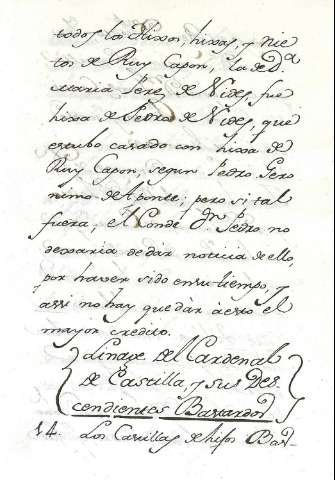 todos los Hixos, hixas, y Nie
tos de Ruy Capon, la de D.ª
Maria Perez de Nides, fue
hixa de Pedro de Nides, que
estubo casado con hixa de
Ruy Capon, segun Pedro Gero
nimo de Aponte; pero si tal
fuera, el Conde Dn. P.º Pedro no
dexaria de dár noticia de ello,
por haver sido en su tiempo, y
assi no hay que dár à esto el
mayor credito.
Linage del Cardenal
de Castilla, y sus Des
cendientes Bastardos
14. Los Casillas de hijos Bas-